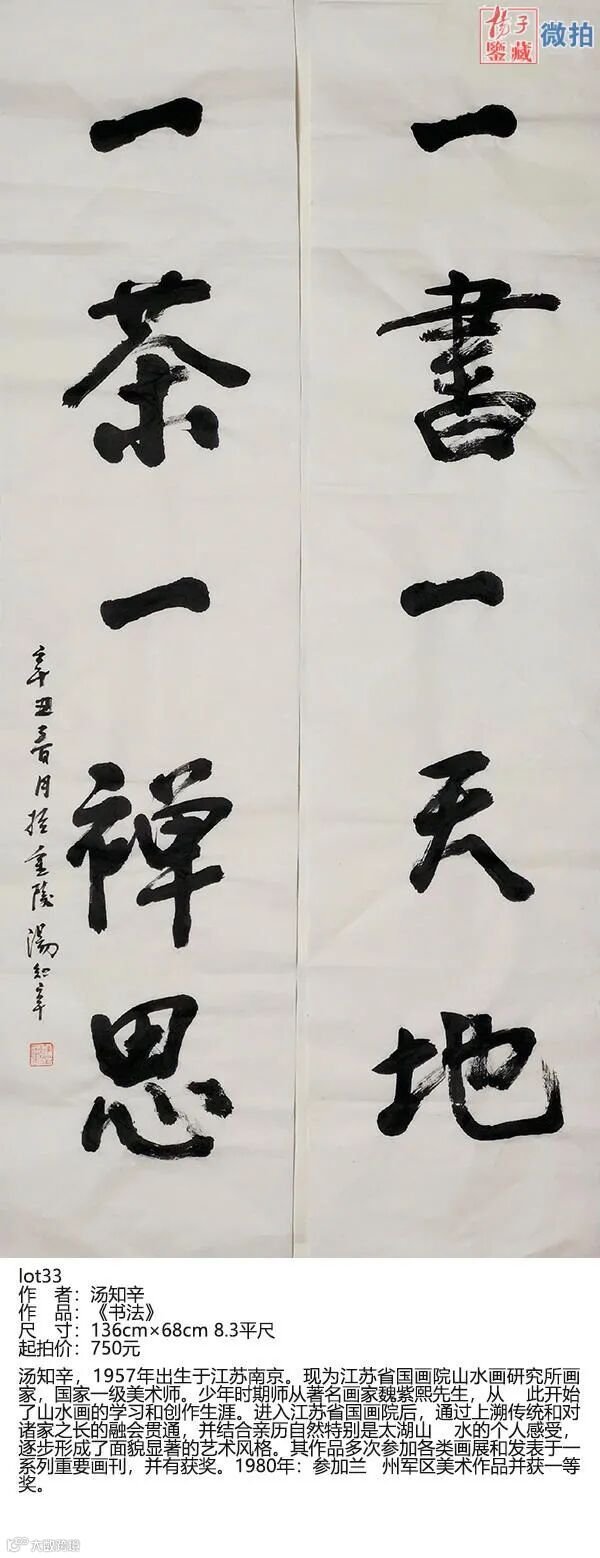 揚子
鑒藏
微拍
一書一天地
一茶一禅思
辛丑
月於金陵湯知辛
lot33
作 者：汤知辛
作 品：《书法》
尺 寸：136cm×68cm 8.3平尺
起拍价：750元
汤知辛，1957年出生于江苏南京。现为江苏省国画院山水画研究所画
家，国家一级美术师。少年时期师从著名画家魏紫熙先生，从 此开始
了山水画的学习和创作生涯。进入江苏省国画院后，通过上溯传统和对
诸家之长的融会贯通，并结合亲历自然特别是太湖山 水的个人感受，
逐步形成了面貌显著的艺术风格。其作品多次参加各类画展和发表于一
系列重要画刊，并有获奖。1980年：参加兰 州军区美术作品并获一等
奖。